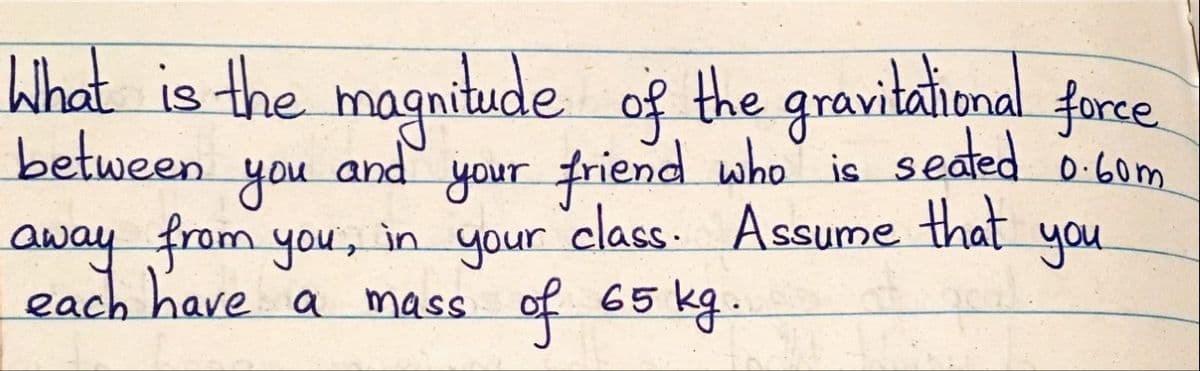 What is the magnitude of the gravitational force
between you and your friend who is seated 0.60m
away from you, in your class. Assume that you
each have a mass of 65 kg.